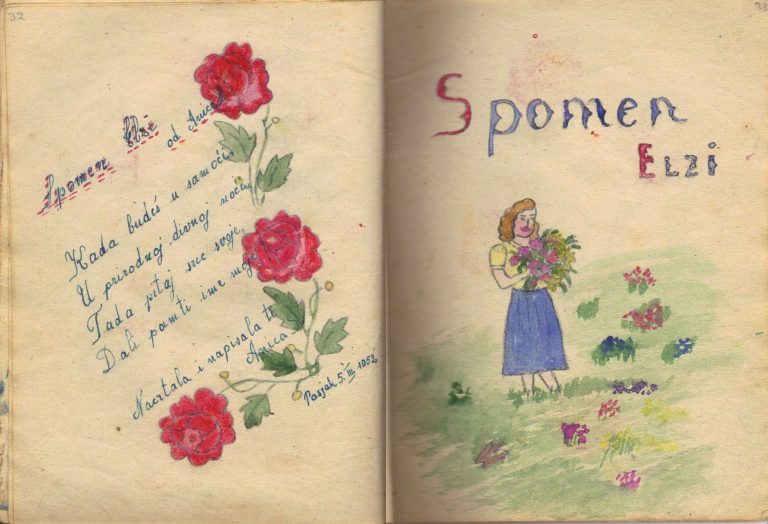 32
Spomen Elzi
od Anice
Kada budeš u samoći
U prirodnoj divnoj noći
Tada pitaj srce svoje,
Dali pamti ime moje
Nacrtala i napisala ti
Anica
Pasjak 5. III. 1952.
33
Spomen
ELZI